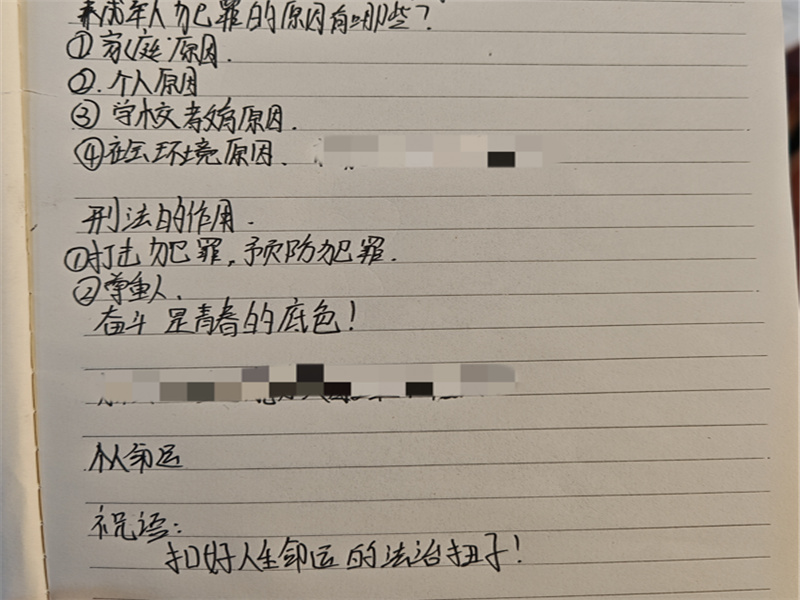 未成年人犯罪的原因有哪些?
①家庭原因.
②.个人原因
③学校教育原因.
④社会环境原因.
刑法的作用.
①打击犯罪,预防犯罪.
②尊重人.
奋斗是青春的底色!
个人命运
祝语:
扣好人生命运的法治扭子!